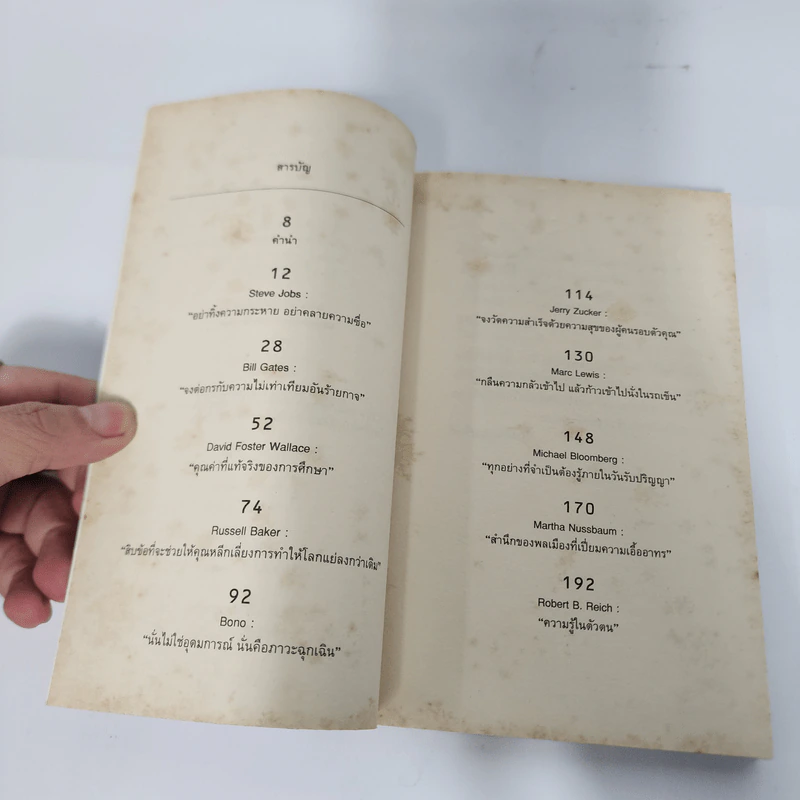 สารบัญ
8
คำนำ
12
Steve Jobs :
“อย่าทิ้งความกระหาย อย่าคลายความซื่อ”
28
Bill Gates :
“จงต่อกรกับความไม่เท่าเทียมอันร้ายกาจ”
52
David Foster Wallace :
“คุณค่าที่แท้จริงของการศึกษา”
74
Russell Baker :
“สิบข้อที่จะช่วยให้คุณหลีกเลี่ยงการทำให้โลกแย่ลงกว่าเดิม”
92
Bono :
“นั่นไม่ใช่อุดมการณ์ นั่นคือภาวะฉุกเฉิน”
114
Jerry Zucker :
“จงวัดความสำเร็จด้วยความสุขของผู้คนรอบตัวคุณ”
130
Marc Lewis :
“กลืนความกลัวเข้าไป แล้วก้าวเข้าไปนั่งในรถเข็น”
148
Michael Bloomberg :
“ทุกอย่างที่จำเป็นต้องรู้ภายในวันรับปริญญา”
170
Martha Nussbaum :
“สำนึกของพลเมืองที่เปี่ยมความเอื้ออาทร”
192
Robert B. Reich :
“ความรู้ในตัวตน”